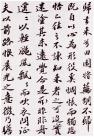 歸去來兮田園將蕪胡
不歸既自以心為形役奚惆悵而獨悲
悟已往之不諫知來者之可追實
迷途其未遠覺今是而昨非舟遙
遙以輕颺風飄飄而吹衣問征
夫以前路恨晨光之熹微